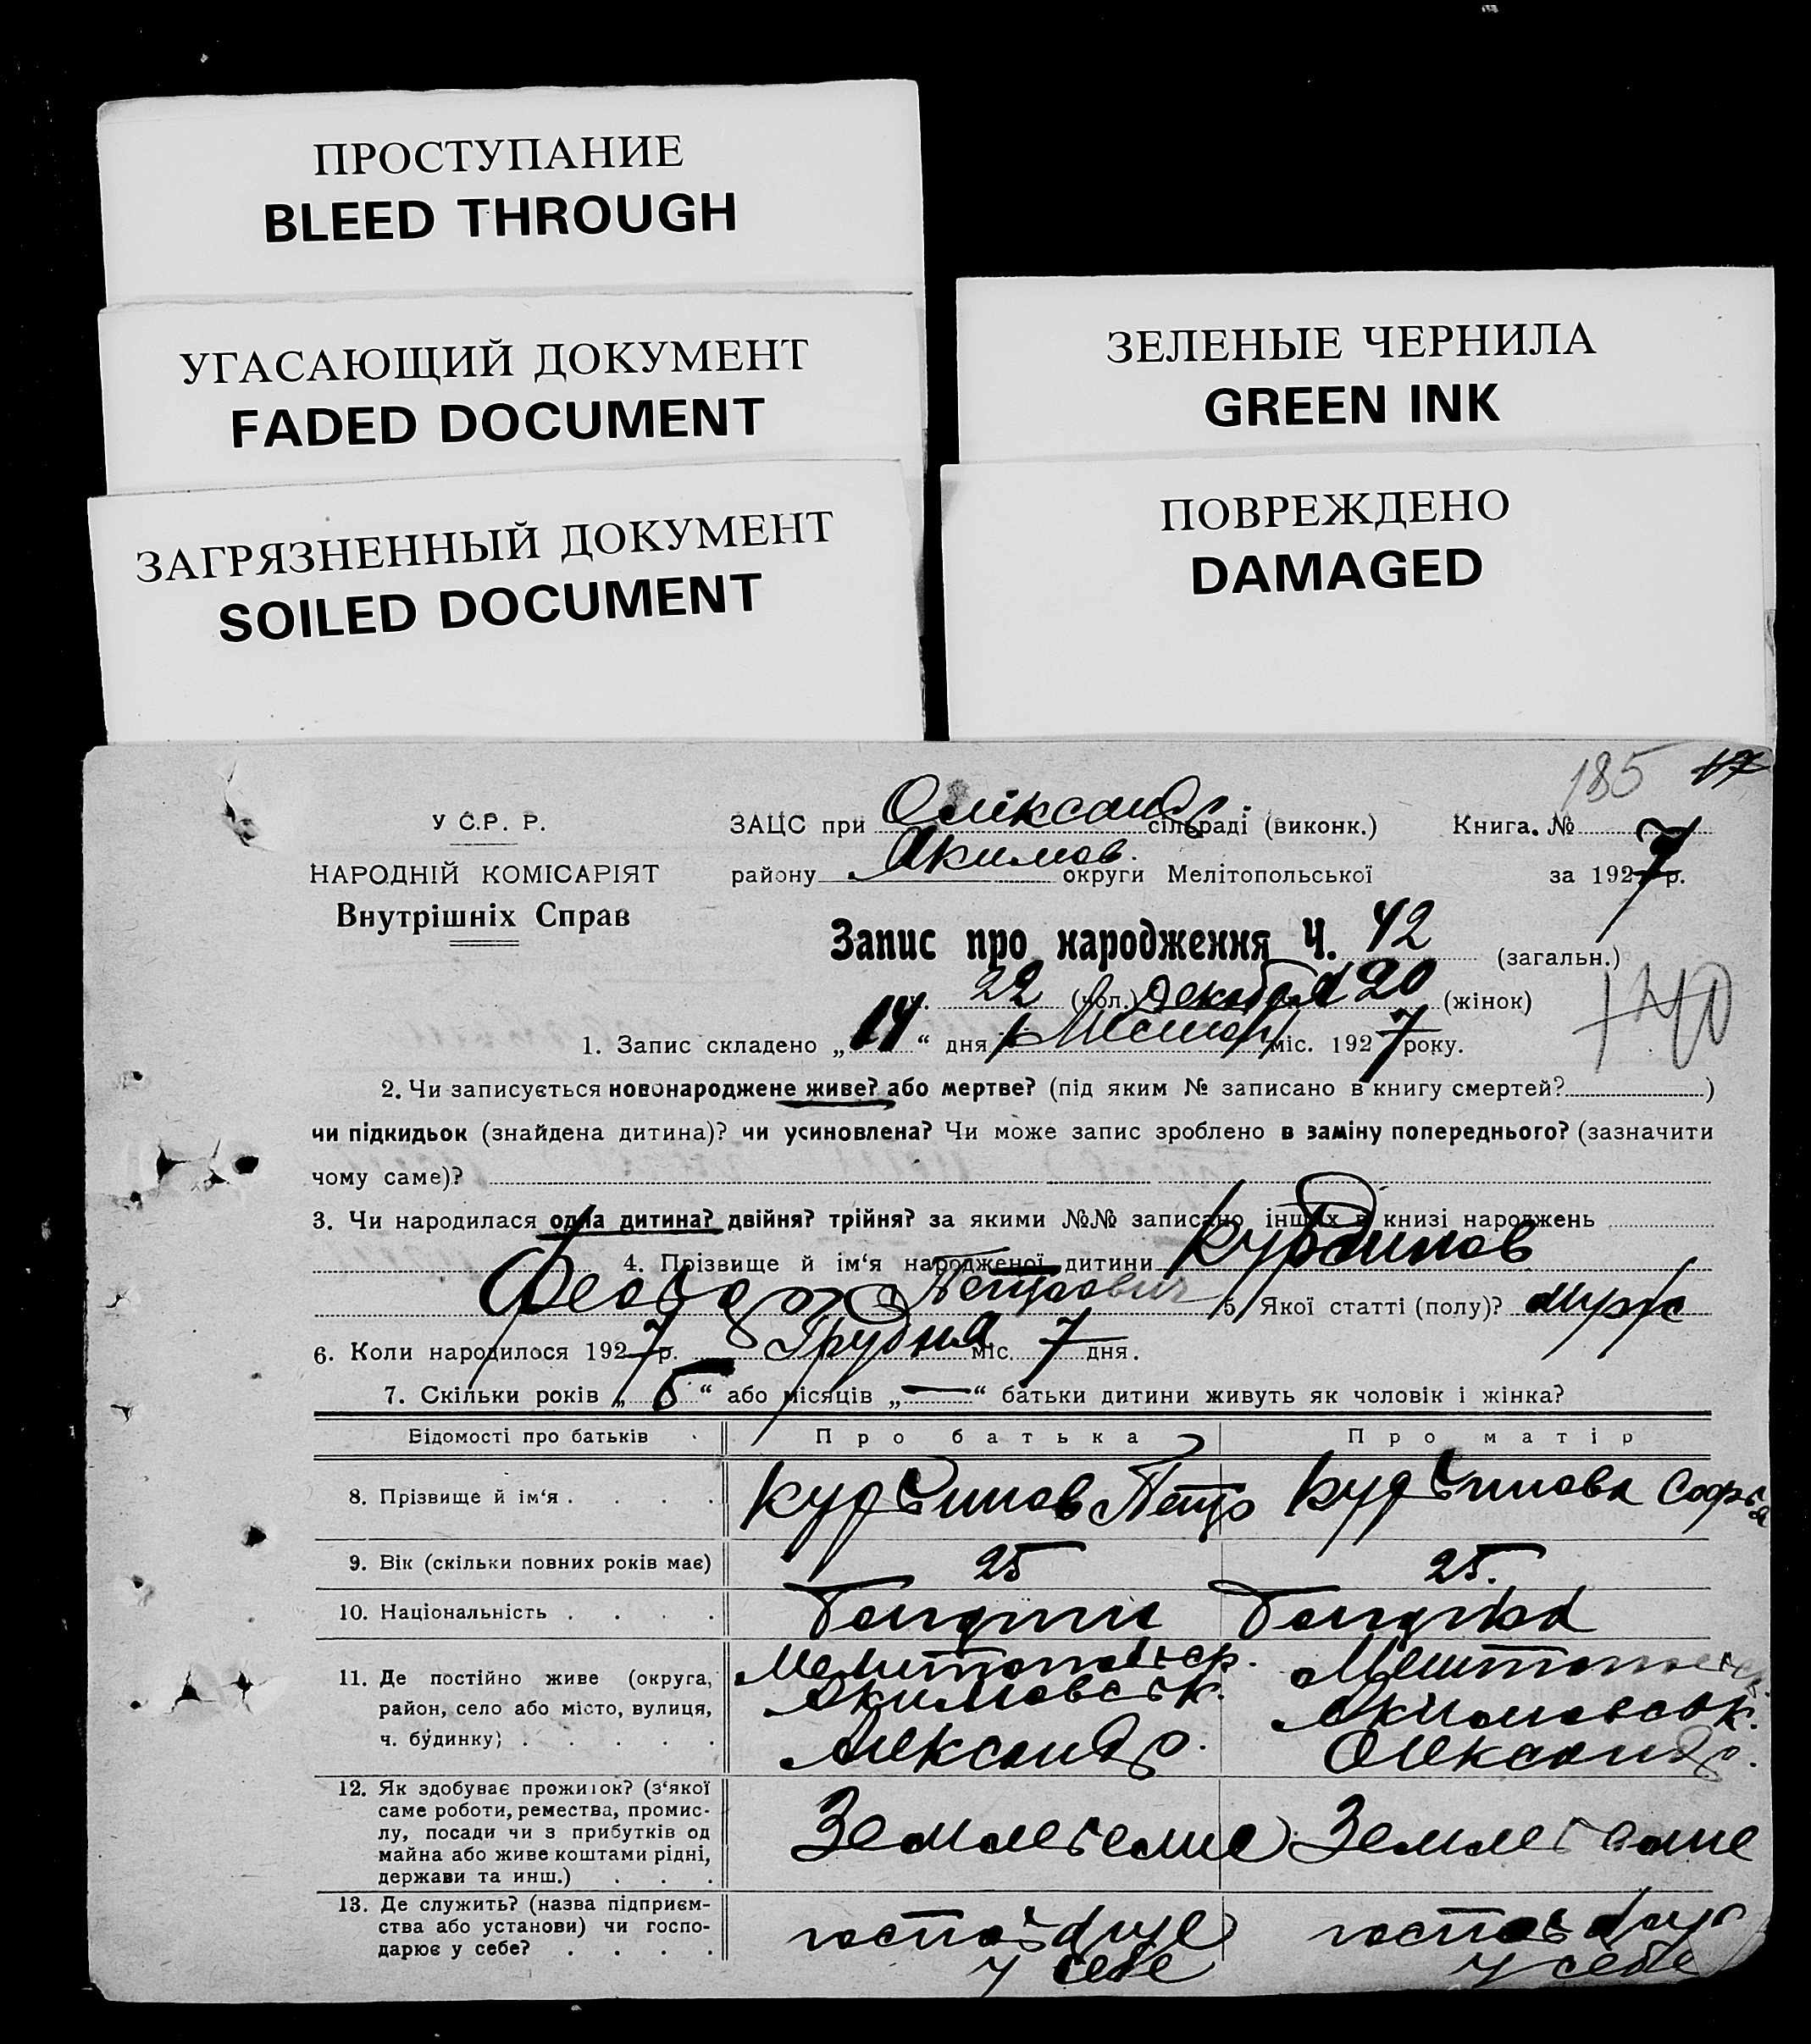 ПРОСТУПАНИЕ
BLEED THROUGH
УГАСАЮЩИЙ ДОКУМЕНТ
FADED DOCUMENT
ЗАГРЯЗНЕННЫЙ ДОКУМЕНТ
SOILED DOCUMENT
ЗЕЛЕНЫЕ ЧЕРНИЛА
GREEN INK
ПОВРЕЖДЕНО
DAMAGED
185 17
У С.Р. Р.
НАРОДНІЙ КОМІСАРІЯТ
Внутрішніх Справ
ЗАЦС при Олександр. сільраді (виконк.) Книга. №
району Якимов. округи Мелітопольської за 1927 р.
Запис про народження Ч. 42 (загальн.)
22 (чол.) 20 (жінок)
140
1. Запис складено „14“ дня міс. 1927 року.
2. Чи записується новонароджене живе? або мертве? (під яким № записано в книгу смертей? )
чи підкидьок (знайдена дитина)? чи усиновлена? Чи може запис зроблено в заміну попереднього? (зазначити
чому саме)?
3. Чи народилася одна дитина? двійня? трійня? за якими №№ записано інших в книзі народжень
4. Прізвище й ім‘я народженої дитини Курдинов
Феодор Петрович 5. Якої статті (полу)? муж
6. Коли народилося 1927 р. Грудня міс. 7 дня.
7. Скільки років „5“ або місяців „—“ батьки дитини живуть як чоловік і жінка?
Відомості про батьків Про батька Про матір
8. Прізвище й ім‘я . . . . Петро Софья
9. Вік (скільки повних років має) 25 25.
10. Національність . . . .
11. Де постійно живе (округа,
район, село або місто, вулиця,
ч. будинку) . . . . .
Мелитопольск. Мелитопольск.
Акимовськ. Акимовськ.
Александр. Олександр.
12. Як здобуває прожиток? (з‘якої
саме роботи, ремества, промис-
лу, посади чи з прибутків од
майна або живе коштами рідні,
держави та инш.) . . .
13. Де служить? (назва підприєм-
ства або установи) чи госпо-
дарює у себе? . . . .
у себе у себе